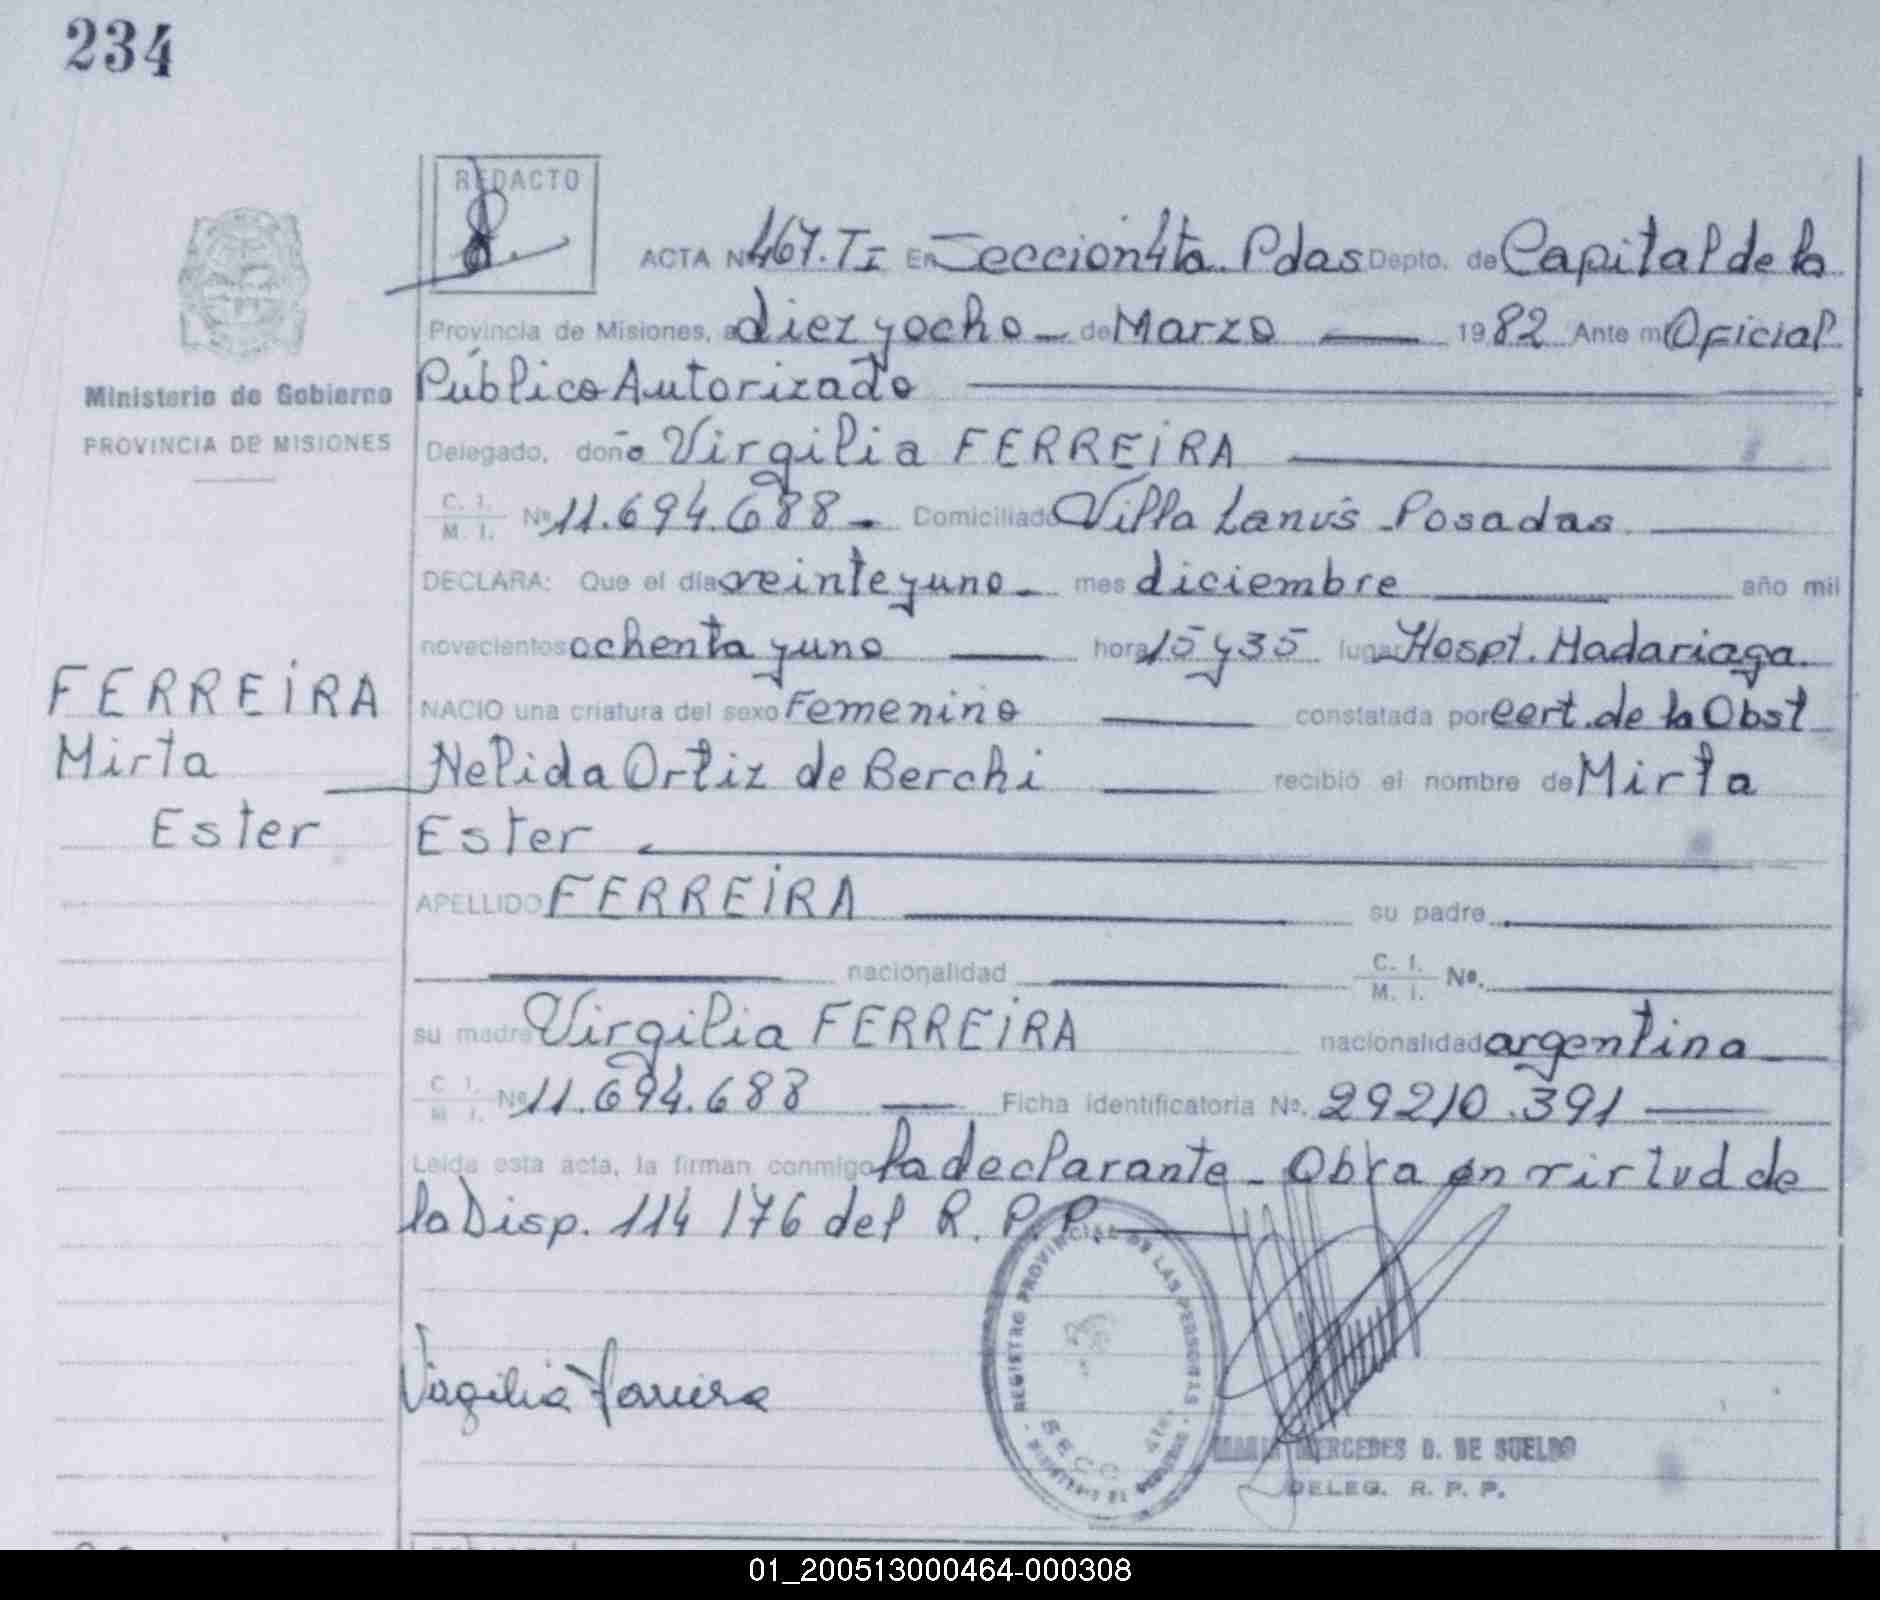 234
REDACTO
ACTA Nº 467. TI En Seccion 4ta. Pdas Depto. de Capital de la
Provincia de Misiones, a diez y ocho de Marzo 1982 Ante mi Oficial
Ministerio de Gobierno
PROVINCIA DE MISIONES
Público Autorizado
Delegado, doña Virgilia FERREIRA
C. I. M. I. Nº 11.694.688. Domiciliado Villa Lanús - Posadas
DECLARA: Que el día veinte y uno - mes diciembre año mil
novecientos ochenta y uno hora 15 y 35 lugar Hospt. Madariaga.
FERREIRA
Mirta
Ester
NACIO una criatura del sexo Femenino constatada por cert. de la Obst
Nelida Ortiz de Berchi recibió el nombre de Mirta
Ester
APELLIDO FERREIRA su padre
nacionalidad C. I. M. I. Nº.
su madre Virgilia FERREIRA nacionalidad argentina
C. I. M. I. Nº 11.694.688 Ficha identificatoria Nº. 29210.391
Leída esta acta, la firman conmigo la declarante - Obra en virtud de
la Disp. 114/76 del R. P. P.
Virgilia Ferreira
REGISTRO PROVINCIAL DE LAS PERSONAS
SECC 4ta.
MERCEDES D. DE SUELDO
DELEG. R. P. P.
01_200513000464-000308